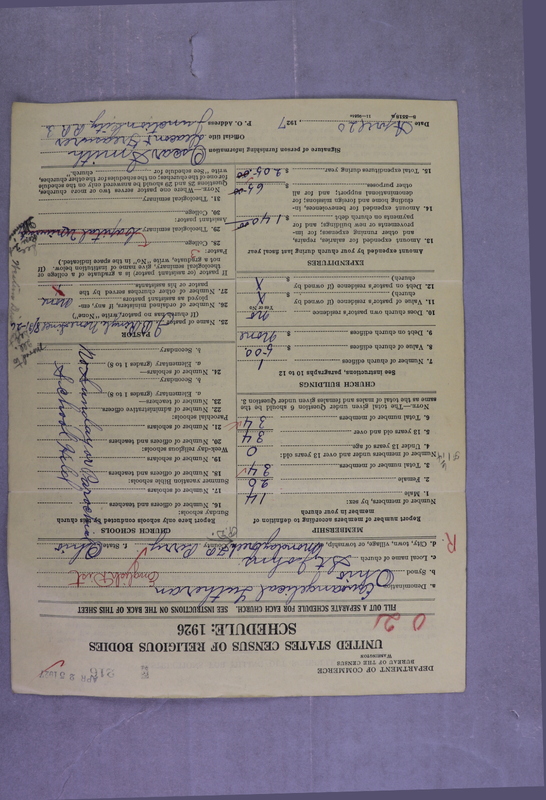 DEPARTMENT OF COMMERCE
BUREAU OF THE CENSUS
WASHINGTON
216
APR 23 1927
UNITED STATES CENSUS OF RELIGIOUS BODIES
SCHEDULE: 1926
FILL OUT A SEPARATE SCHEDULE FOR EACH CHURCH. SEE INSTRUCTIONS ON THE BACK OF THIS SHEET
a. Denomination Evangelical Lutheran
b. Synod Ohio English Dist
c. Local name of church St Johns
d. City, town, village, or township, County Perry State Ohio
MEMBERSHIP
Report number of members according to definition of member in your church
Number of members, by sex:
1. Male 14
2. Female 20
3. Total number of members 34
Number of members under and over 13 years old:
4. Under 13 years of age 0
5. 13 years old and over 34
6. Total number of members 34
Note.—The total given under Question 6 should be the same as the total of males and females given under Question 3.
CHURCH BUILDINGS
See Instructions, paragraphs 10 to 12
7. Number of church edifices 1
8. Value of church edifices $ 500
9. Debt on church edifices $ None
10. Does church own pastor's residence No
Yes or No
11. Value of pastor's residence (if owned by church) $ X
12. Debt on pastor's residence (if owned by church) $ X
EXPENDITURES
Amount expended by your church during last fiscal year
13. Amount expended for salaries, repairs, and other running expenses; for improvements or new buildings; and for payments on church debt $ 140.00
14. Amount expended for benevolences, including home and foreign missions; for denominational support; and for all other purposes $ 65.00
15. Total expenditures during year $ 205.00
CHURCH SCHOOLS
Report here only schools conducted by this church
Sunday schools:
16. Number of officers and teachers
17. Number of scholars
Summer vacation Bible schools:
18. Number of officers and teachers
19. Number of scholars
Weekday religious schools:
20. Number of officers and teachers
21. Number of scholars
Parochial schools:
22. Number of administrative officers
23. Number of teachers—
a. Elementary (grades 1 to 8)
b. Secondary
24. Number of scholars—
a. Elementary (grades 1 to 8)
b. Secondary
No Sunday or Parochial
School Held
PASTOR
25. Name of pastor
(If church has no pastor, write "None")
26. Number of ordained ministers, if any, employed as assistant pastors None
27. Number of other churches served by the pastor of his assistants
If pastor (or assistant pastor) is a graduate of a college or theological seminary, give name of institution below. (If not a graduate, write "No" in the space indicated).
Pastor:
28. College
29. Theological seminary Capital
Assistant pastor:
30. College
31. Theological seminary
Note.—Where one pastor serves two or more churches, Questions 28 and 29 should be answered only on the schedule for one of the churches; on the schedules for the other churches, write "See schedule for church."
Signature of person furnishing information Oscar Smith
Official title Deacon & Treasurer
P. O. Address Junction City RR 3
Date April 20 1927